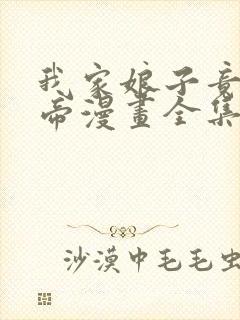 我家娘子竟
帝漫畫全集
沙漠中毛毛虫